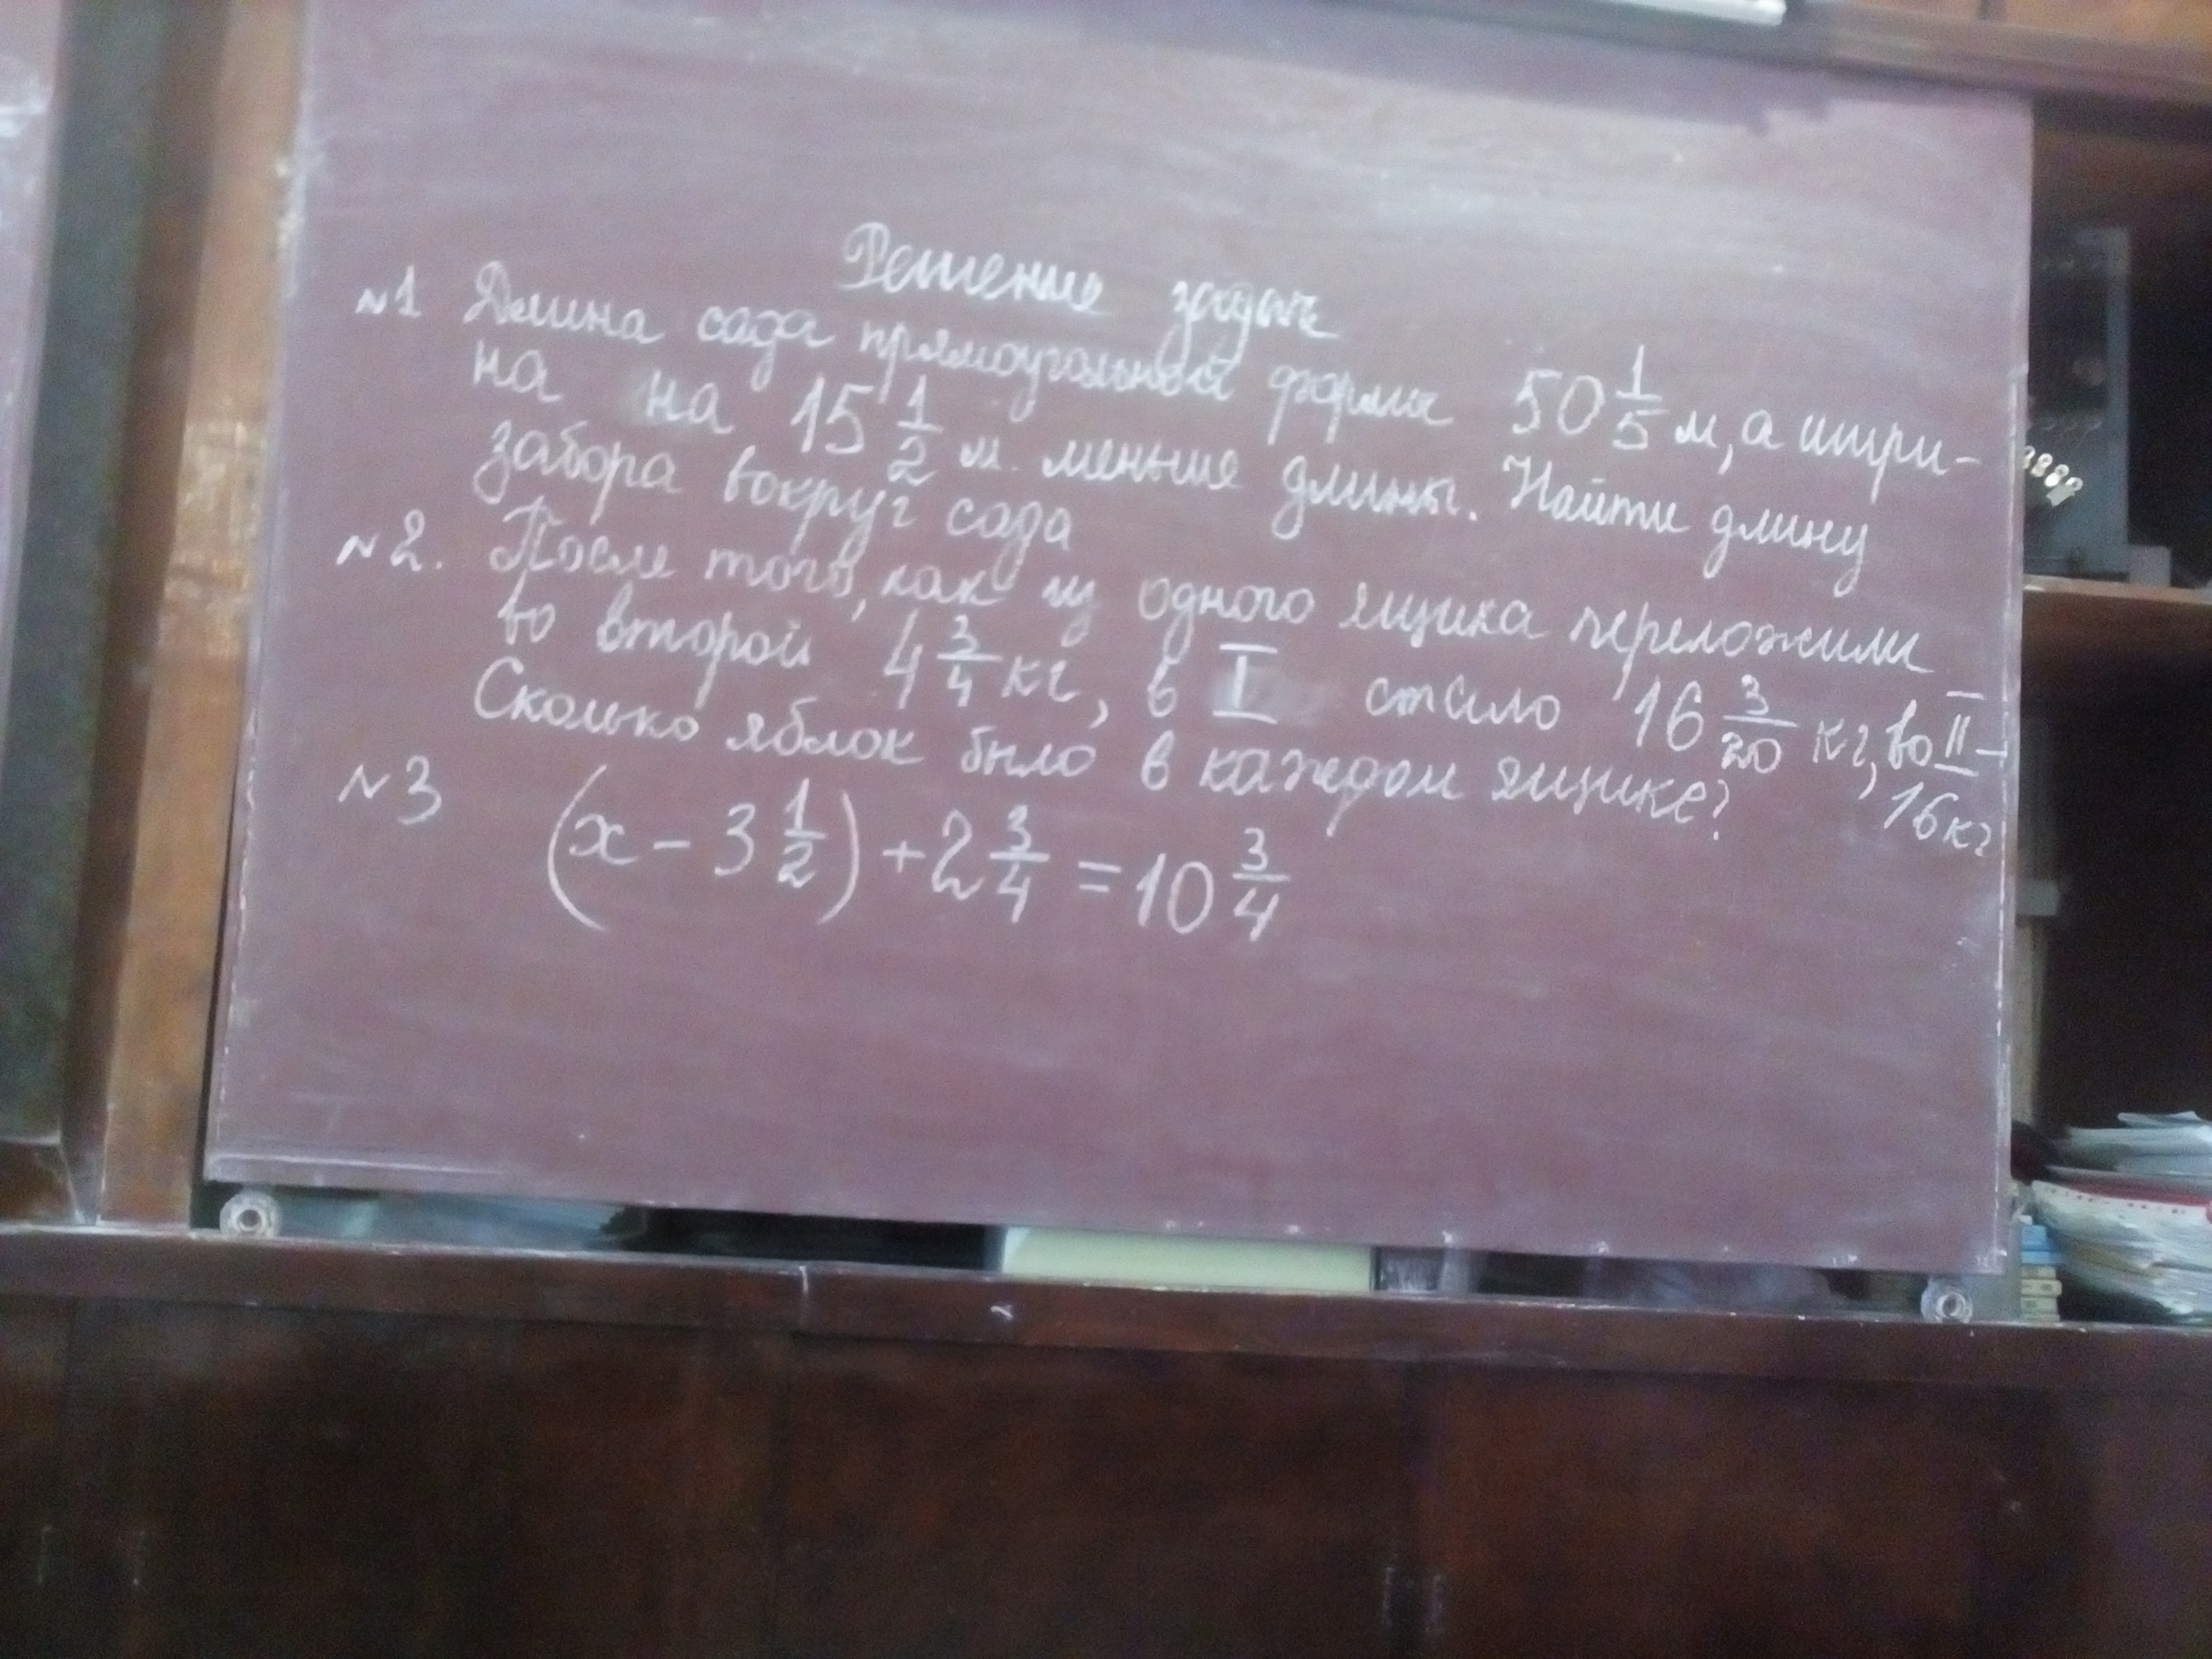 Решение задач
№1 Длина сада прямоугольной формы 50 1/5 м, а шири-
на на 15 1/2 м. меньше длины. Найти длину
забора вокруг сада
№2. После того, как из одного ящика переложили
во второй 4 3/4 кг, в I стало 16 3/20 кг, во II -
Сколько яблок было в каждом ящике? 16 кг
№3 (x - 3 1/2) + 2 3/4 = 10 3/4